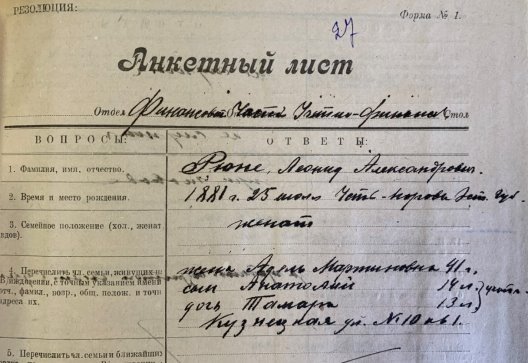 РЕЗОЛЮЦИЯ:
Форма № 1.
27
Анкетный лист
Отдел Финансов. Части Стол
ВОПРОСЫ: ОТВЕТЫ:
1. Фамилия, имя, отчество. Рюне, Леонид Александрович.
2. Время и место рождения. 1881 г. 25 июля
3. Семейное положение (хол., женат
вдов). женат
4. Перечислить чл. семьи, живущих
иждивении, с точным указанием имени жена Адель Мартиновна 41 л.
отч., фамил., возр., общ. полож. и точн сын Анатолий 14 л.
адреса их. дочь Тамара 13 л.
Кузнецкая ул. № 10 кв 1.
5. Перечислить чл. семьи и ближайших